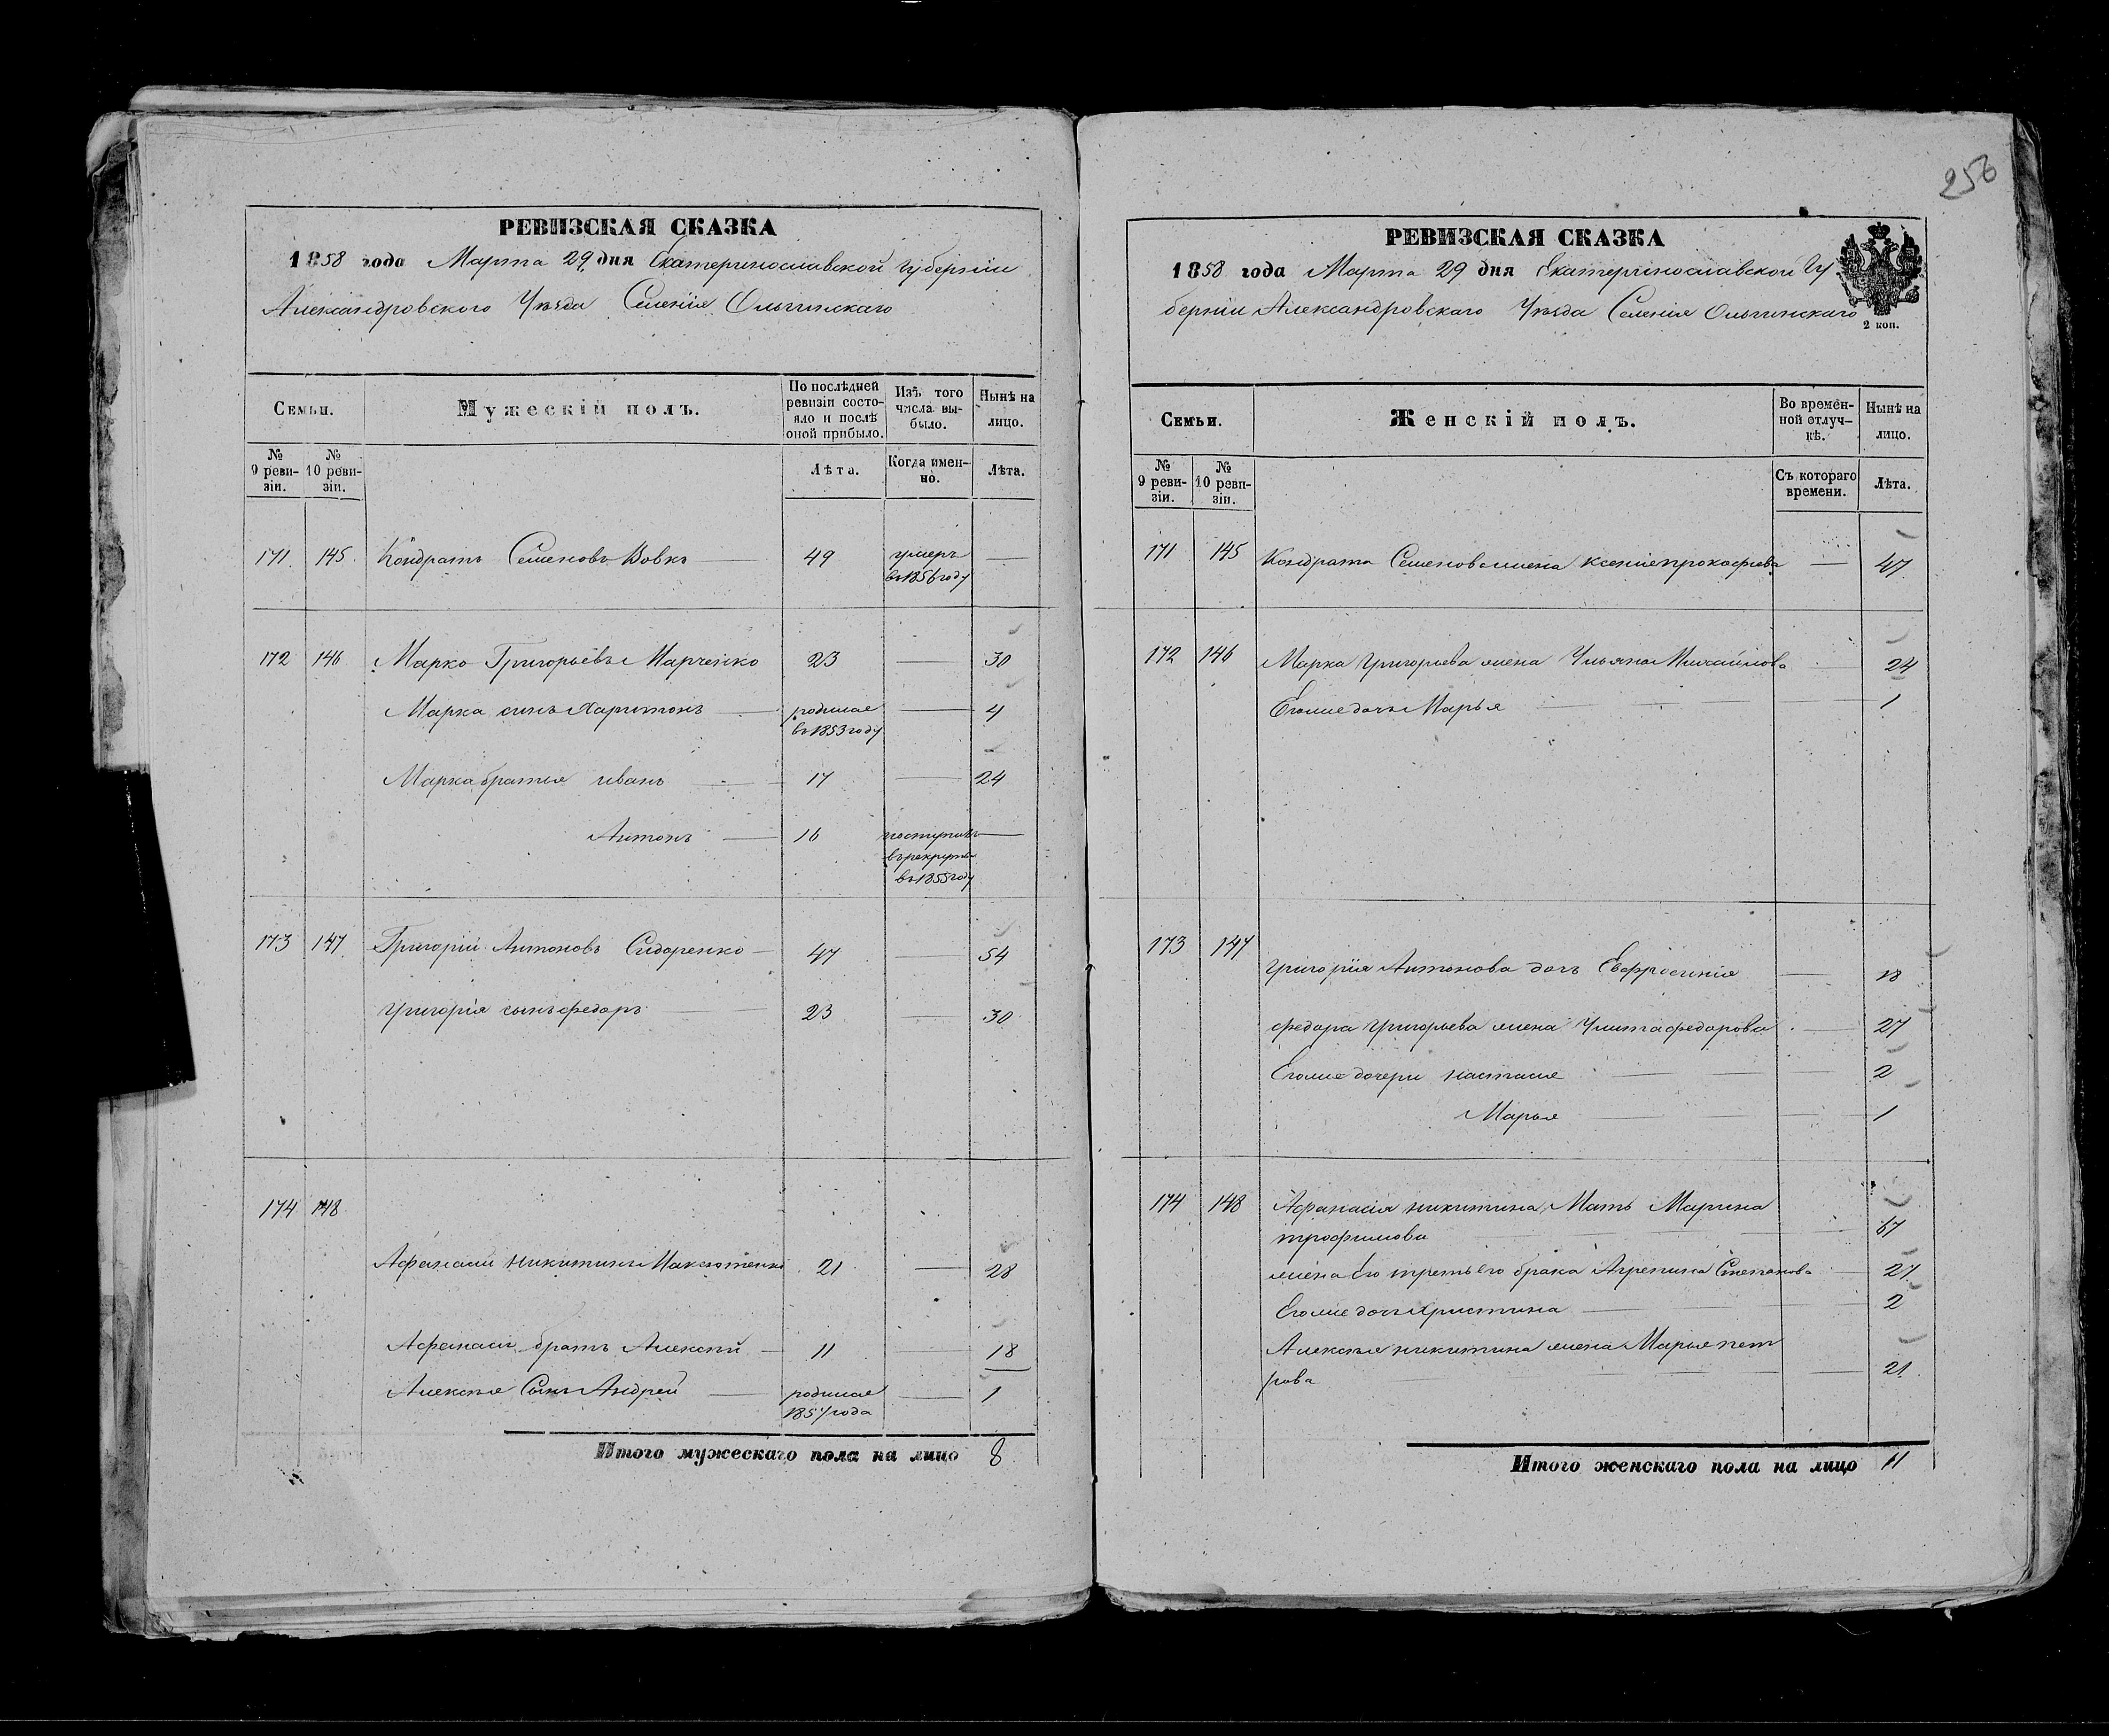 256
РЕВИЗСКАЯ СКАЗКА
1858 года Марта 29 дня Екатеринославской Губерніи
Александровского Уѣзда Селенія Ольгинскаго
Семьи.
Мужескій полъ.
По послѣдней
ревизіи состо-
яло и послѣ
оной прибыло.
Изъ того
числа вы-
было.
Нынѣ на
лицо.
№
9 реви-
зіи.
№
10 реви-
зіи.
Лѣта.
Когда имен-
но.
Лѣта.
171 145 Кондратъ Семеновъ Вовкъ 49 умеръ
въ 1856 году
172 146 Марко Григорьевъ Марченко 23 30
Марка сынъ Харитонъ родился 4
въ 1853 году
Марка братья иванъ 17 24
Антонъ 16 поступилъ
в рекруты
въ 1855 году
173 147 Григорій Антоновъ Сидоренко 47 54
григорія сынъ федоръ 23 30
174 148
Афанасій никитинъ 21 28
Афанасія братъ Алексѣй 11 18
Алексѣя Сынъ Андрей родился 1
1857 года
Итого мужескаго пола на лицо 8
РЕВИЗСКАЯ СКАЗКА
1858 года Марта 29 дня Екатеринославской Гу
берніи Александровскаго Уѣзда Селенія Ольгинскаго
2 коп.
Семьи.
Женскій полъ.
Во времен-
ной отлуч-
кѣ.
Нынѣ на
лицо.
№
9 реви-
зіи.
№
10 реви-
зіи.
Съ котораго
времени.
Лѣта.
171 145 Кондрата Семенова жена Ксенія прокофьева 47
172 146 Марка григорьева жена Ульяна Михайлова 24
Егоже дочь Марья 1
173 147
григорія Антонова дочь Евфросинія 18
федора григорьева жена Улита федорова 27
Егоже дочери настасия 2
Марья 1
174 148 Афанасія никитина Мать Марина
трофимова 67
жена Его третьего брака Агрепина Степанова 27
Егоже дочь христина 2
Алексѣя никитина жена Марья пет
рова 21
Итого женскаго пола на лицо 11